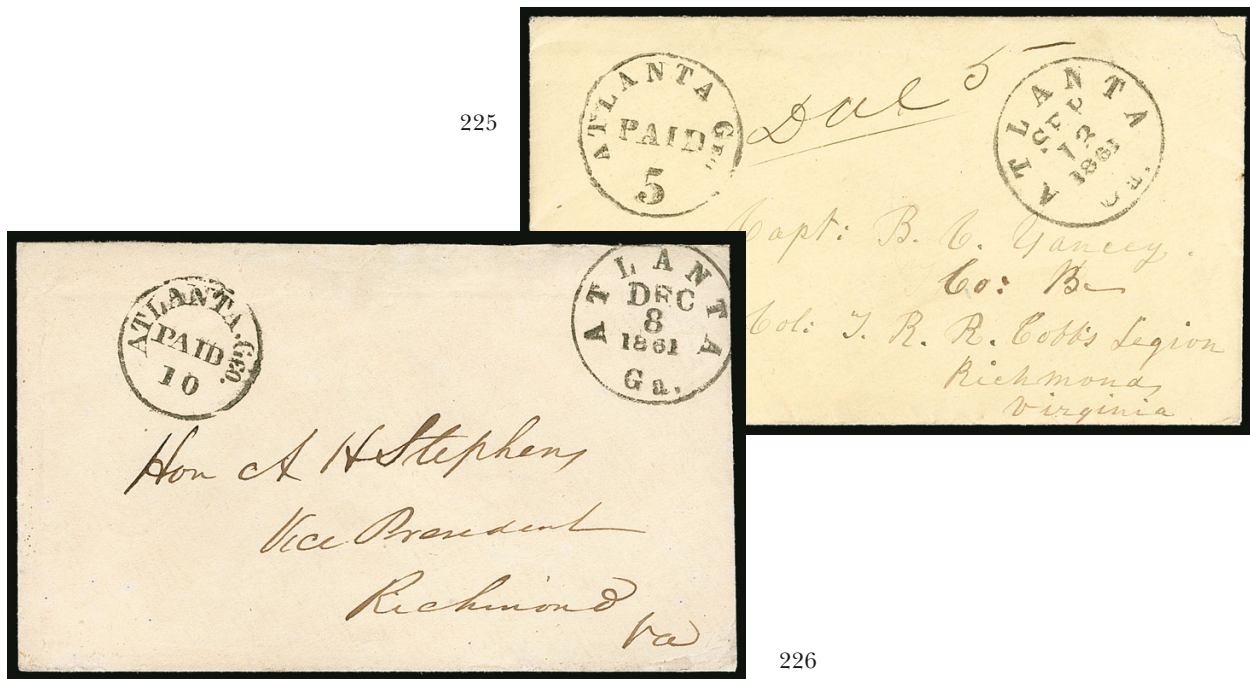 225
ATLANTA GEO.
PAID
5
Due 5
ATLANTA Ga.
SEP
12
1861
Capt: B. C. Yancey.
Co: B
Col: T. R. R. Cobb's Legion
Richmond,
Virginia
ATLANTA, GEO.
PAID
10
ATLANTA Ga.
DEC
8
1861
Hon A H Stephens
Vice President
Richmond
Va
226